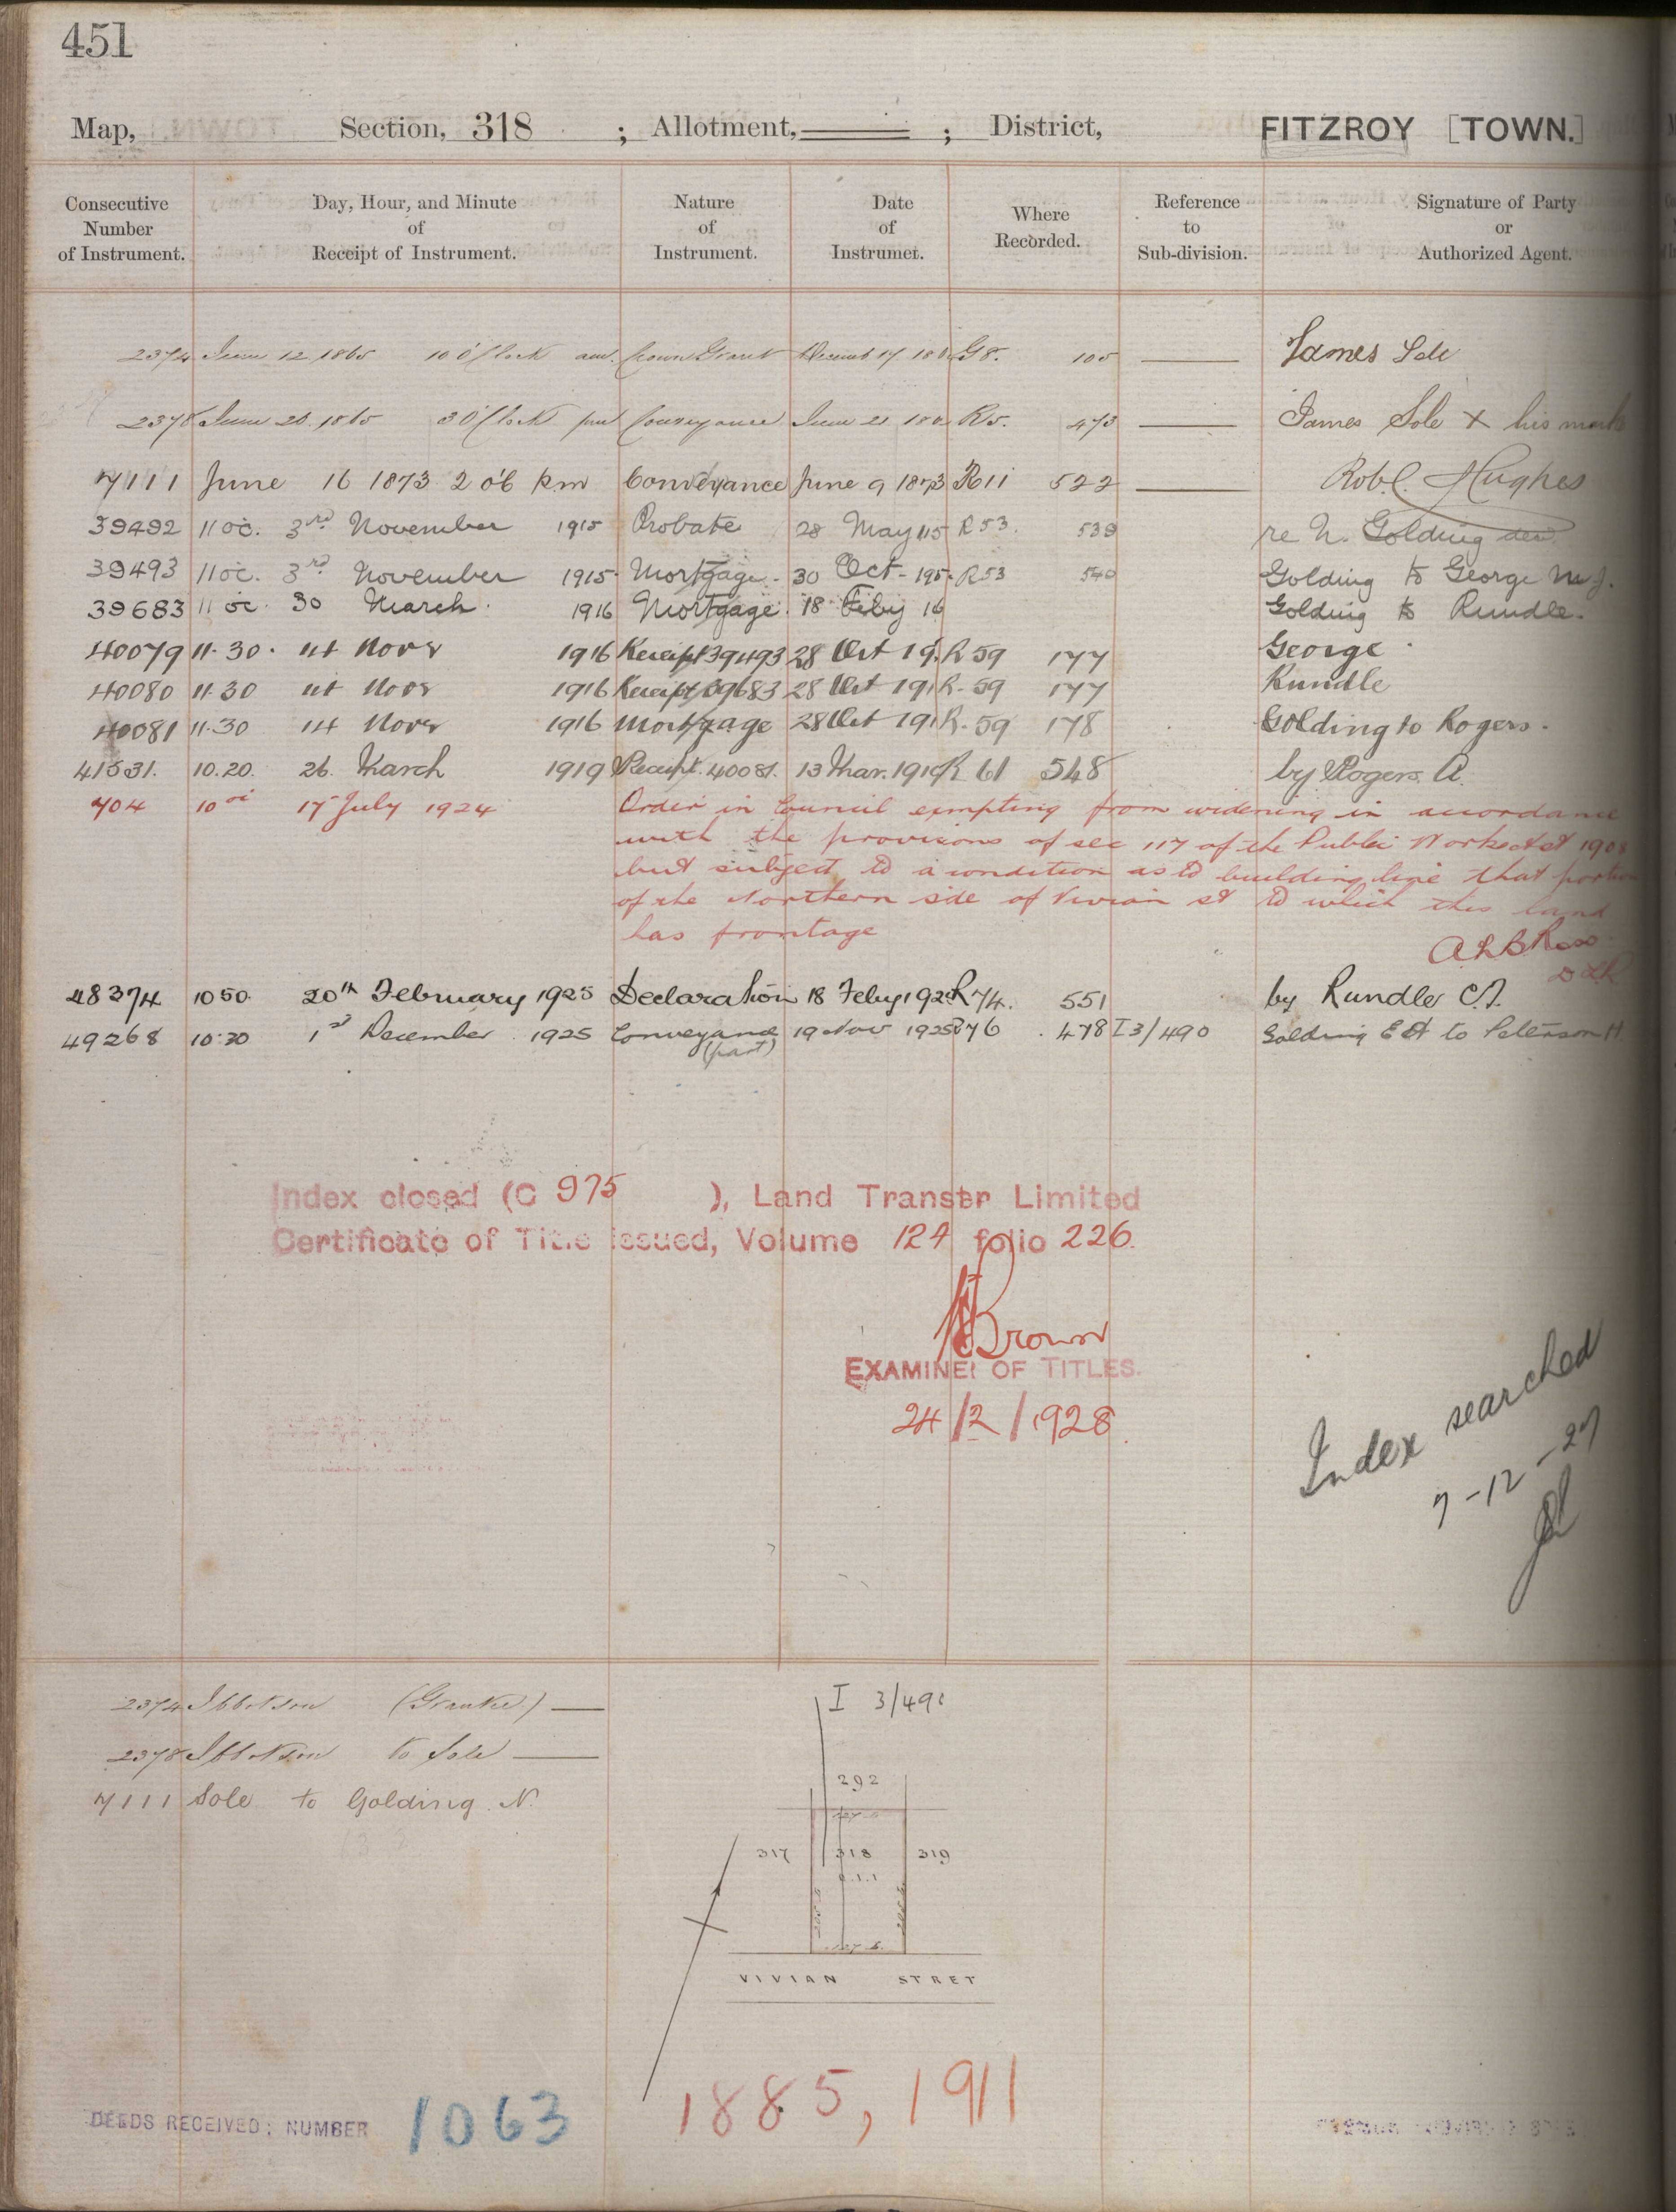 451
Map, Section, 318 ; Allotment, ; District, FITZROY [TOWN.]
Consecutive Number of Instrument. Day, Hour, and Minute of Receipt of Instrument. Nature of Instrument. Date of Instrumet. Where Recorded. Reference to Sub-division. Signature of Party or Authorized Agent.
2374 June 12 1865 10 O'Clock am. Crown Grant G8. 105 James Sole
2378 June 1865 3 O'Clock pm Conveyance June 21 R5. 473 James Sole X his mark
7111 June 16 1873 2 o'c pm Conveyance June 9 1873 R11 522 Robt. Hughes
39492 11 oc. 3rd November 1915 Probate 28 May 15 R53. 539 re N. Golding dec.
39493 11 oc. 3rd November 1915 Mortgage 30 Oct - 195. R53 540 Golding to George M. J.
39683 11 oc 30 March. 1916 Mortgage. 18 Feby 16 Golding to Rundle.
40079 11.30. 1st Novr 1916 Receipt 39493 28 Oct 19 R 59 177 George
40080 11.30 1st Novr 1916 Receipt 39683 28 Oct 191 R. 59 177 Rundle
40081 11.30 1st Novr 1916 Mortgage 28 Oct 191 R. 59 178 Golding to Rogers.
41531. 10.20. 26. March 1919 Receipt. 40081. 13 Mar. 1919 R 61 548 by Rogers A
704 10 oc 17 July 1924 Order in Council exempting from widening in accordance
with the provisions of sec 117 of the Public Works Act 1908
but subject to a condition as to building line that portion
of the Northern side of Vivian st to which this land
has frontage
DLR
48374 10 50. 20th February 1925 Declaration 18 Feby 1925 R74. 551 by Rundle C.J.
49268 10.30 1st December 1925 Conveyance 19 Nov 1925 R76 478 I 3/490 Golding E A to Peterson H
(part)
Index closed (C 975 ), Land Transfer Limited
Certificate of Title issued, Volume 124 folio 226.
Brown
EXAMINER OF TITLES.
24/2/1928
Index searched
7-12-27
2374 Ibbotson (Grantee)
2378 Ibbotson to Sole
7111 Sole to Golding N.
I 3/490
292
317 318 319
0.1.1
VIVIAN STRET
DEEDS RECEIVED; NUMBER 1063
1885, 1911